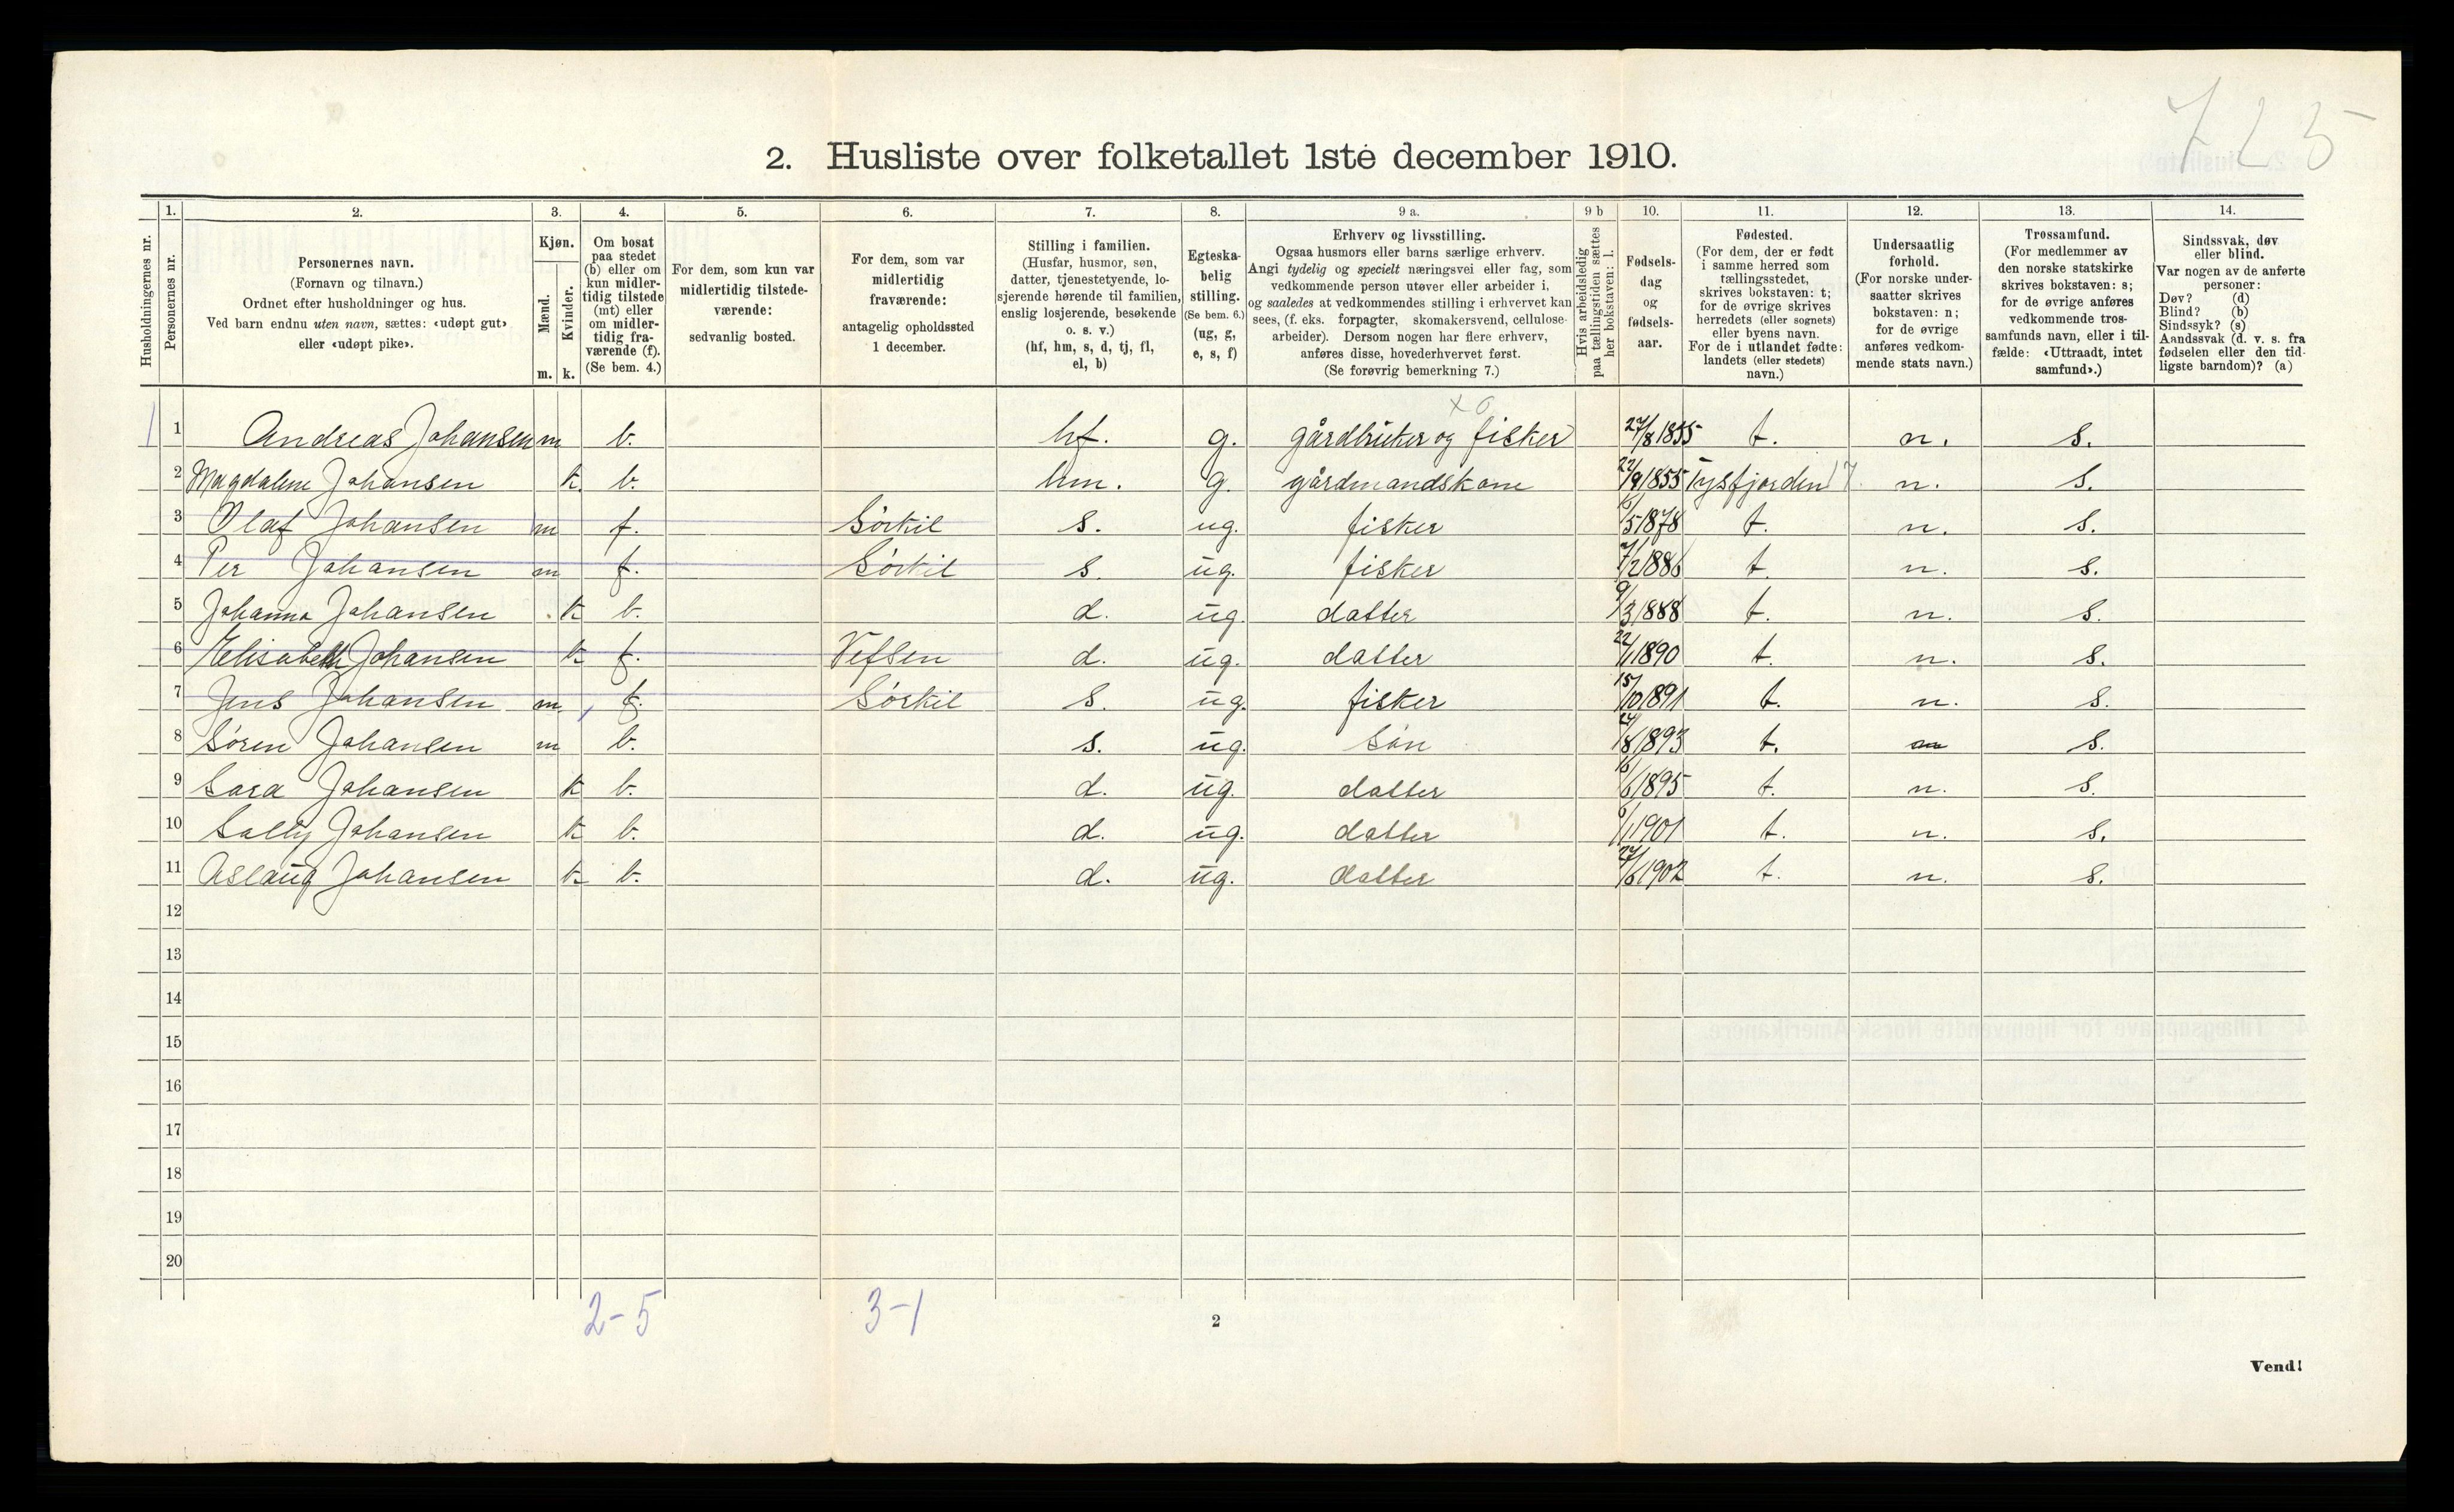 725
2. Husliste over folketallet 1ste december 1910.
Husholdningernes nr.
1.
Personernes nr.
2.
Personernes navn.
(Fornavn og tilnavn.)
Ordnet efter husholdninger og hus.
Ved barn endnu uten navn, sættes: «udøpt gut»
eller «udøpt pike».
3.
Kjøn.
Mænd.
Kvinder.
m. k.
4.
Om bosat
paa stedet
(b) eller om
kun midler-
tidig tilstede
(mt) eller
om midler-
tidig fra-
værende (f).
(Se bem. 4.)
5.
For dem, som kun var
midlertidig tilstede-
værende:
sedvanlig bosted.
6.
For dem, som var
midlertidig
fraværende:
antagelig opholdssted
1 december.
7.
Stilling i familien.
(Husfar, husmor, søn,
datter, tjenestetyende, lo-
sjerende hørende til familien,
enslig losjerende, besøkende
o. s. v.)
(hf, hm, s, d, tj, fl,
el, b)
8.
Egteska-
belig
stilling.
(Se bem. 6.)
(ug, g,
e, s, f)
9 a.
Erhverv og livsstilling.
Ogsaa husmors eller barns særlige erhverv.
Angi tydelig og specielt næringsvei eller fag, som
vedkommende person utøver eller arbeider i,
og saaledes at vedkommendes stilling i erhvervet kan
sees, (f. eks. forpagter, skomakersvend, cellulose-
arbeider). Dersom nogen har flere erhverv,
anføres disse, hovederhvervet først.
(Se forøvrig bemerkning 7.)
9 b
Hvis arbeidsledig
paa tællingstiden sættes
her bokstaven: l.
10.
Fødsels-
dag
og
fødsels-
aar.
11.
Fødested.
(For dem, der er født
i samme herred som
tællingsstedet,
skrives bokstaven: t;
for de øvrige skrives
herredets (eller sognets)
eller byens navn.
For de i utlandet fødte:
landets (eller stedets)
navn.)
12.
Undersaatlig
forhold.
(For norske under-
saatter skrives
bokstaven: n;
for de øvrige
anføres vedkom-
mende stats navn.)
13.
Trossamfund.
(For medlemmer av
den norske statskirke
skrives bokstaven: s;
for de øvrige anføres
vedkommende tros-
samfunds navn, eller i til-
fælde: «Uttraadt, intet
samfund».)
14.
Sindssvak, døv
eller blind.
Var nogen av de anførte
personer:
Døv? (d)
Blind? (b)
Sindssyk? (s)
Aandssvak (d. v. s. fra
fødselen eller den tid-
ligste barndom)? (a)
x o
1 1 Andreas Johansen m b. hf. g. gårdbruker og fisker 27/8 1855 t. n. s.
2 Magdalene Johansen k. b. hm. g. gårdmandskone 22/9 1855 Tysfjorden 17 n. s.
3 Olaf Johansen m f. Sørkil s. ug. fisker /5 1878 t. n. s.
4 Per Johansen m f. Sørkil s. ug. fisker 7/2 1886 t. n. s.
5 Johanna Johansen k b. d. ug. datter 9/3 1888 t. n. s.
6 Elisabeth Johansen k f. Vefsen d. ug. datter 22/1 1890 t. n. s.
7 Jens Johansen m. f. Sørkil s. ug. fisker 15/10 1891 t. n. s.
8 Søren Johansen m b. s. ug. Søn 24/8 1893 t. s.
9 Sara Johansen k b. d. ug. datter 16/6 1895 t. n. s.
10 Sally Johansen k b. d. ug. datter 6/1 1901 t. n. s.
11 Aslaug Johansen k b. d. ug. datter 27/6 1902 t. n. s.
12
13
14
15
16
17
18
19
20
2-5 3-1
2
Vend!